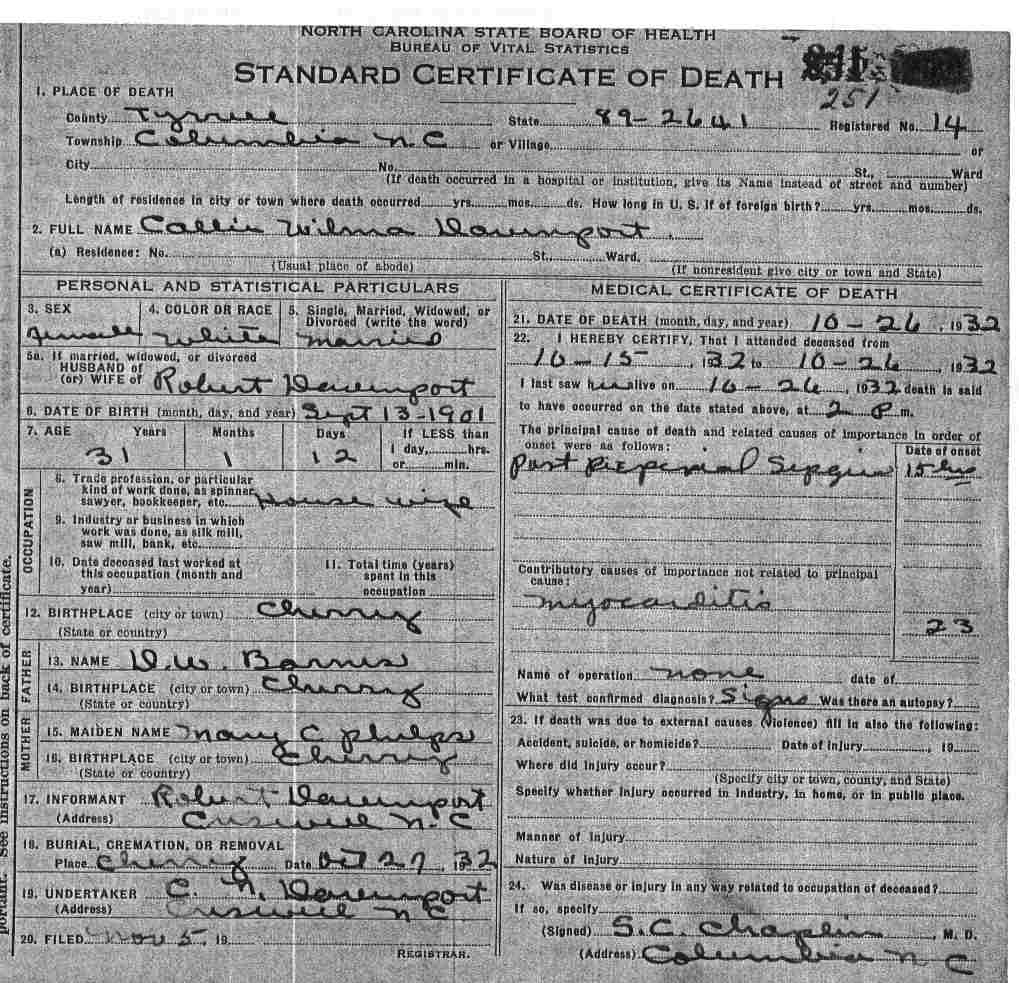 NORTH CAROLINA STATE BOARD OF HEALTH
BUREAU OF VITAL STATISTICS
STANDARD CERTIFICATE OF DEATH
251
1. PLACE OF DEATH
County Tyrrell State 89-2641 Registered No. 14
Township Columbia N.C or Village or
City No. St., Ward
(If death occurred in a hospital or institution, give its Name instead of street and number)
Length of residence in city or town where death occurred yrs. mos. ds. How long in U. S. if of foreign birth? yrs. mos. ds.
2. FULL NAME Callie Wilma Davenport
(a) Residence: No. St., Ward.
(Usual place of abode) (If nonresident give city or town and State)
PERSONAL AND STATISTICAL PARTICULARS
3. SEX 4. COLOR OR RACE 5. Single, Married, Widowed, or Divorced (write the word)
Female White Married
5a. If married, widowed, or divorced
HUSBAND of
(or) WIFE of Robert Davenport
6. DATE OF BIRTH (month, day, and year) Sept 13-1901
7. AGE Years Months Days If LESS than
1 day, hrs.
31 1 12 or min.
OCCUPATION
8. Trade profession, or particular
kind of work done, as spinner,
sawyer, bookkeeper, etc. House wife
9. Industry or business in which
work was done, as silk mill,
saw mill, bank, etc.
10. Date deceased last worked at
this occupation (month and
year)
11. Total time (years)
spent in this
occupation
12. BIRTHPLACE (city or town) Cherry
(State or country)
FATHER
13. NAME D.W. Barnes
14. BIRTHPLACE (city or town) Cherry
(State or country)
MOTHER
15. MAIDEN NAME Mary C Phelps
16. BIRTHPLACE (city or town) Cherry
(State or country)
17. INFORMANT Robert Davenport
(Address) Creswell N.C
18. BURIAL, CREMATION, OR REMOVAL
Place Cherry Date Oct 27, 1932
19. UNDERTAKER C. N. Davenport
(Address) Creswell N C
20. FILED Nov 5, 19
REGISTRAR.
MEDICAL CERTIFICATE OF DEATH
21. DATE OF DEATH (month, day, and year) 10-26, 1932
22. I HEREBY CERTIFY, That I attended deceased from
10-15, 1932 to 10-26, 1932
I last saw h alive on 10-26, 1932 death is said
to have occurred on the date stated above, at 2 P. m.
The principal cause of death and related causes of importance in order of
onset were as follows:
Date of onset
Post
Contributory causes of importance not related to principal
cause:
Myocarditis
23
Name of operation none date of
What test confirmed diagnosis? Signs Was there an autopsy?
23. If death was due to external causes (violence) fill in also the following:
Accident, suicide, or homicide? Date of injury, 19
Where did injury occur?
(Specify city or town, county, and State)
Specify whether injury occurred in industry, in home, or in public place.
Manner of injury
Nature of injury
24. Was disease or injury in any way related to occupation of deceased?
If so, specify
(Signed) S.C. Chaplin, M. D.
(Address) Columbia N C
portant. See instructions on back of certificate.